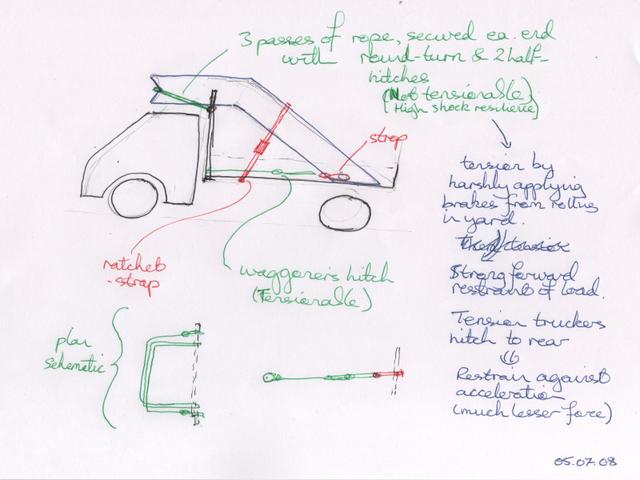 3 passes of rope, secured ea. end
with round-turn & 2 half-
hitches
(Not tensionable)
(High shock resilience)
strop
ratchet
strap
waggoner's hitch
(Tensionable)
plan
schematic
tension by
harshly applying
brakes from rolling
in yard.
Strong forward
restraint of load.
Tension truckers
hitch to rear
Restrain against
acceleration
(much lesser force)
05.07.08